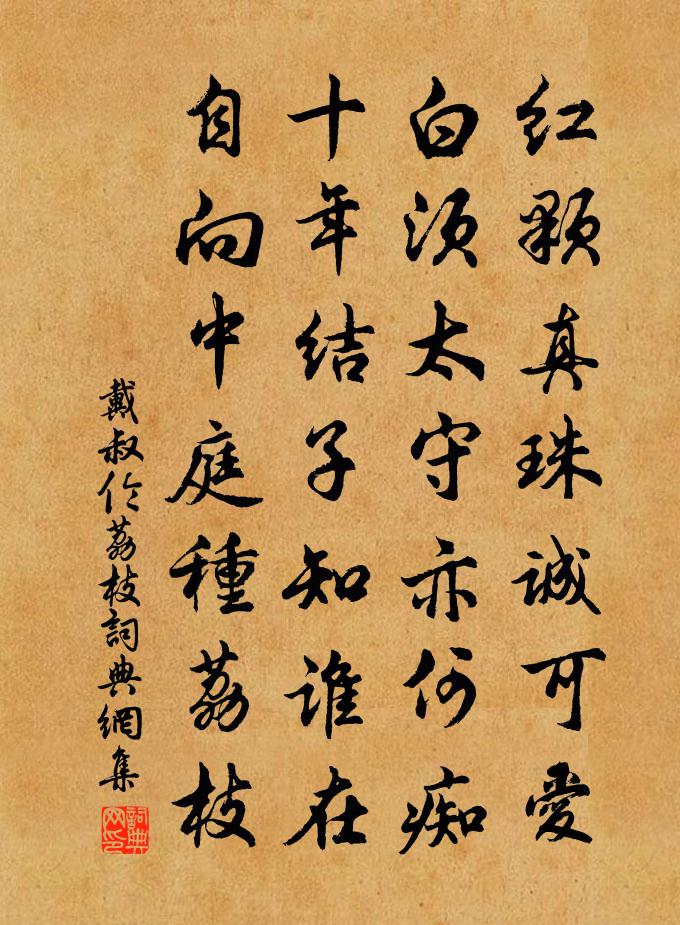 红颗真珠诚可爱
白须太守亦何痴
十年结子知谁在
自向中庭種荔枝
戴叔伦荔枝詞典網集
詞典网印